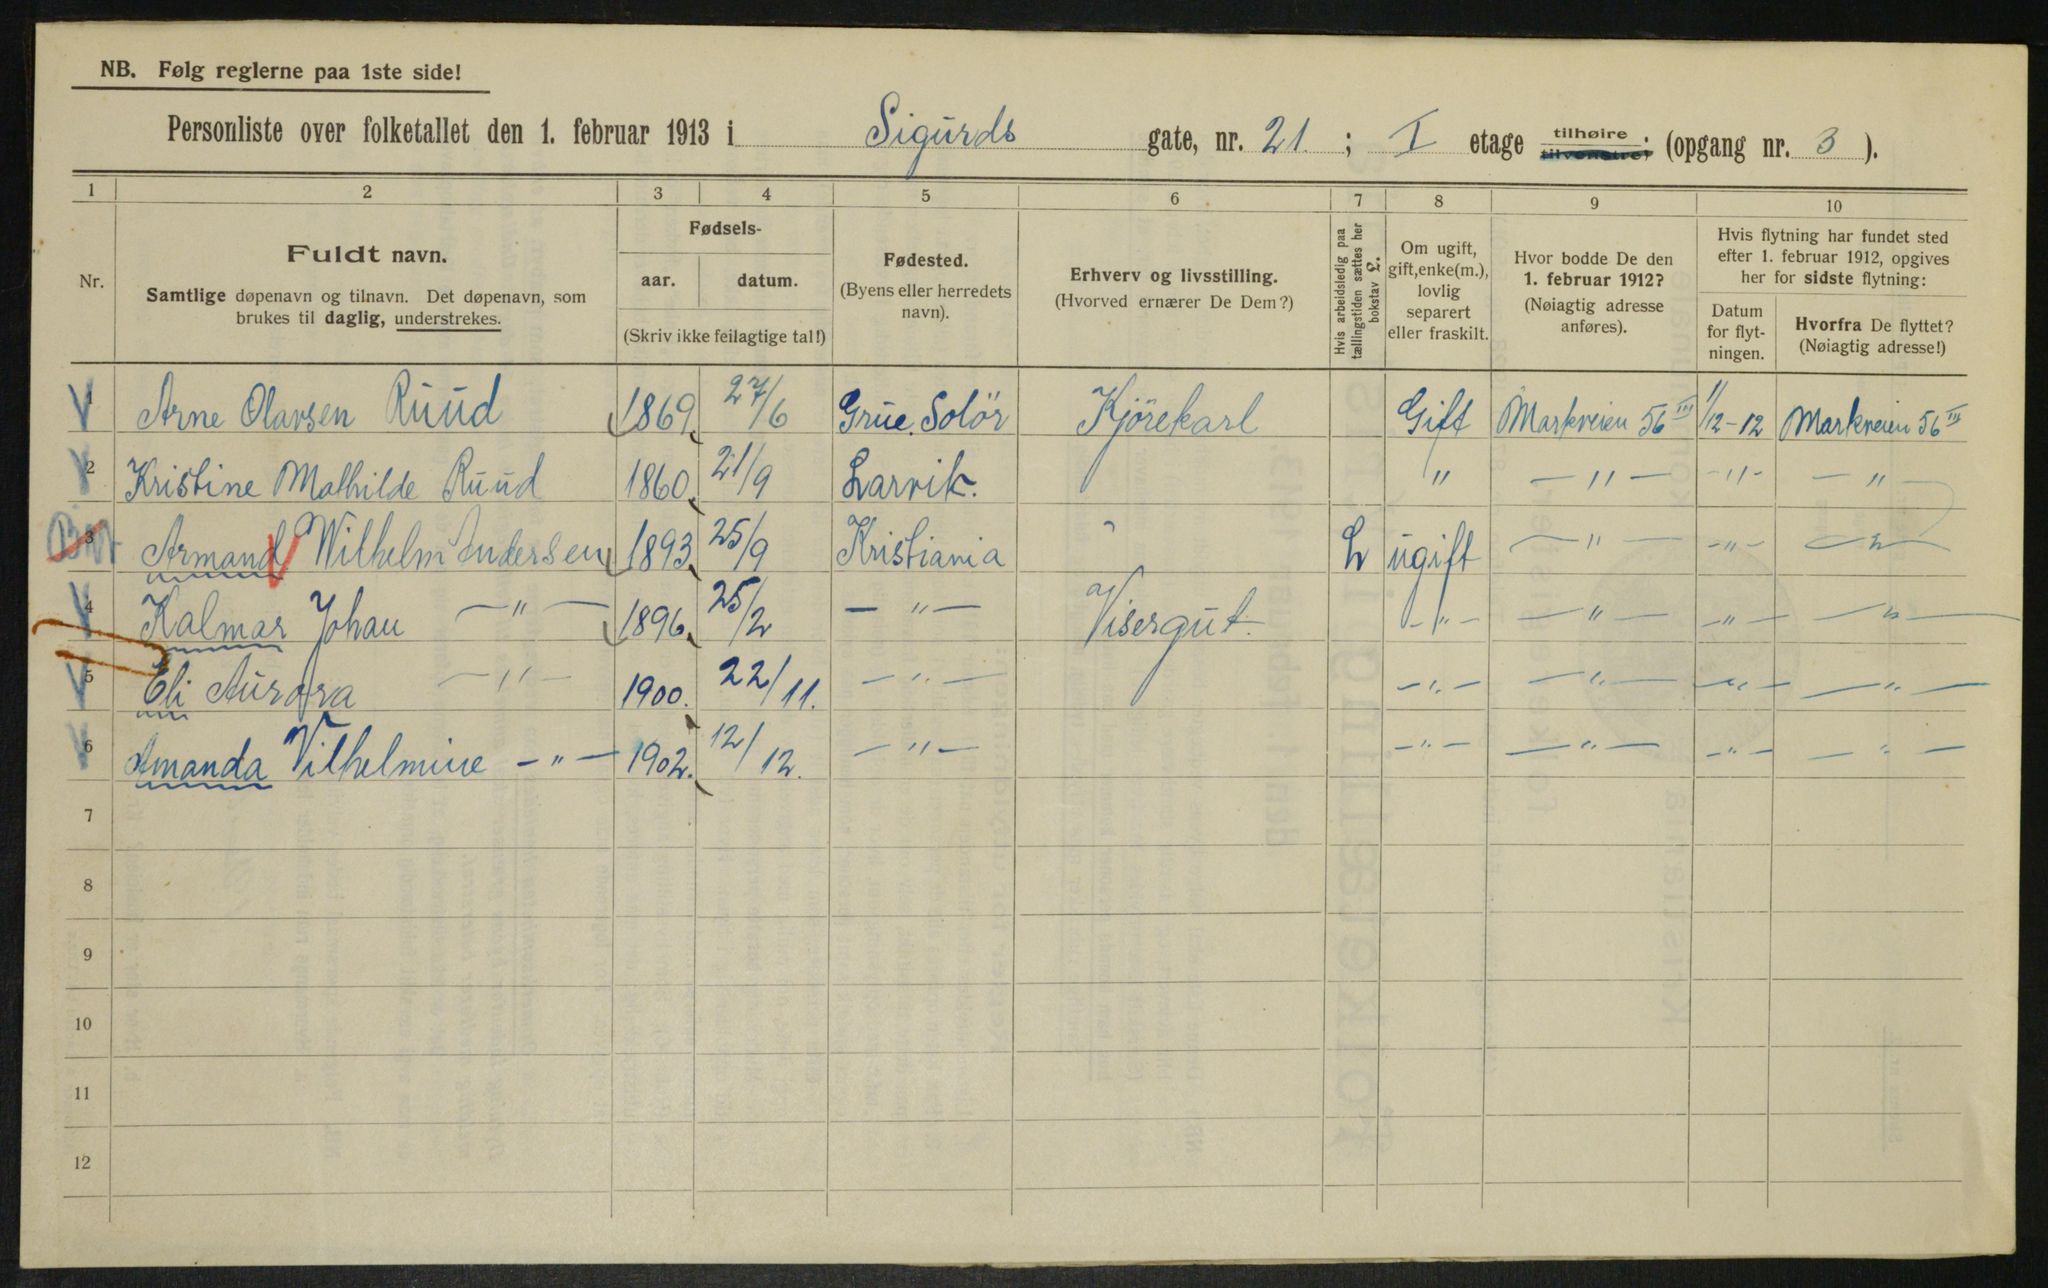 NB. Følg reglerne paa 1ste side!
Personliste over folketallet den 1. februar 1913 i Sigurds gate, nr. 21 ; I etage tilhøire tilvenstre; (opgang nr. 3 ).
1 2 3 4 5 6 7 8 9 10
Nr.
Fuldt navn.
Samtlige døpenavn og tilnavn. Det døpenavn, som
brukes til daglig, understrekes.
Fødsels-
aar. datum.
(Skriv ikke feilagtige tal!)
Fødested.
(Byens eller herredets
navn).
Erhverv og livsstilling.
(Hvorved ernærer De Dem?)
Hvis arbeidsledig paa
tællingstiden sættes her
bokstav L.
Om ugift,
gift, enke(m.),
lovlig
separert
eller fraskilt.
Hvor bodde De den
1. februar 1912?
(Nøiagtig adresse
anføres).
Hvis flytning har fundet sted
efter 1. februar 1912, opgives
her for sidste flytning:
Datum
for flyt-
ningen.
Hvorfra De flyttet?
(Nøiagtig adresse!)
1 Arne Olavsen Ruud 1869. 27/6 Grue. Solör Kjörekarl Gift Markveien 56 III 1/12-12 Markveien 56 III
2 Kristine Mathilde Ruud 1860. 21/9 Larvik. " — " — — " — — " —
3 Armand Wilhelm Andersen 1893. 25/9 Kristiania " L ugift — " — — " — — " —
4 Kalmar Johan — " — 1896. 25/2 — " — Visergut. — " — — " — — " — — " —
5 Eli Aurora — " — 1900. 22/11. — " — — " — — " — — " — — " —
6 Amanda Vilhelmine — " — 1902. 12/12. — " — — " — — " — — " — — " —
7
8
9
10
11
12